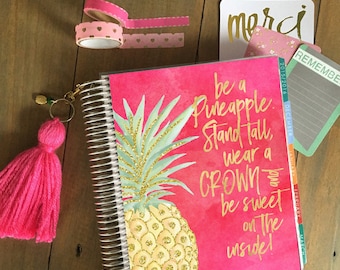 merci
REMEMBER
be a
Pineapple.
Stand tall,
wear a
CROWN and
be sweet
on the
inside!